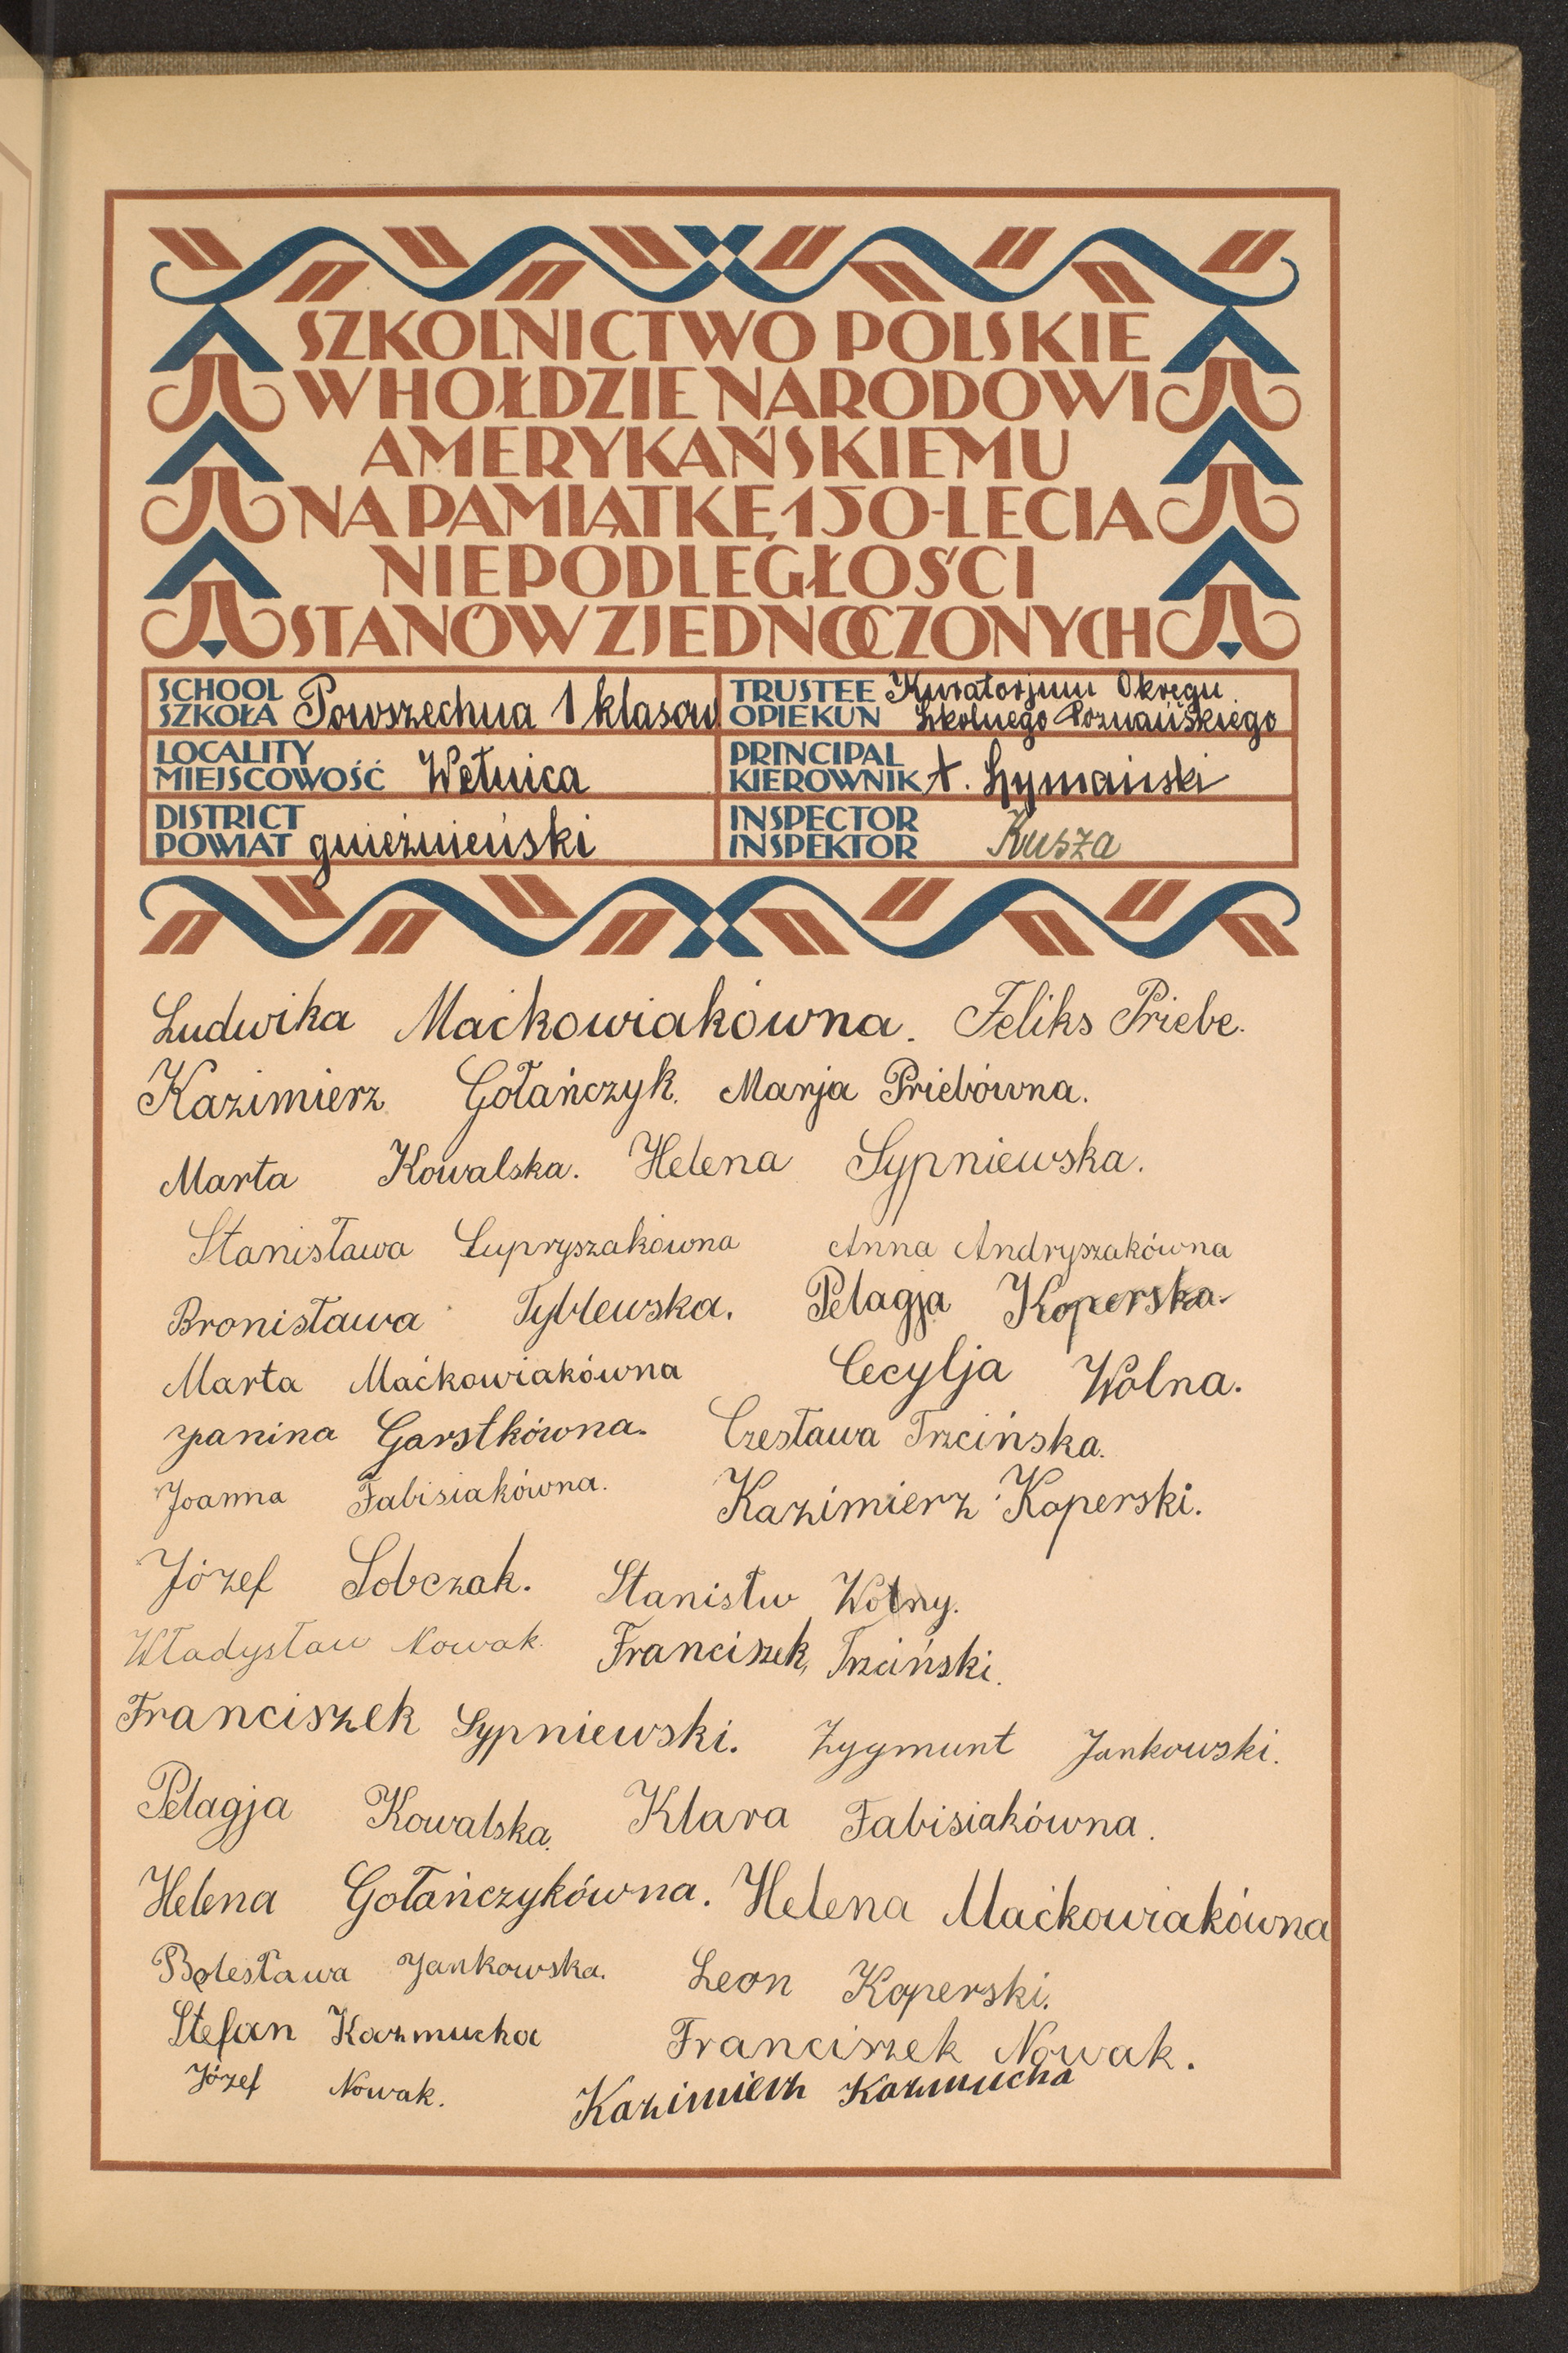 SZKOLNICTWO POLSKIE
W HOŁDZIE NARODOWI
AMERYKAŃSKIEMU
NA PAMIĄTKĘ 150-LECIA
NIEPODLEGŁOŚCI
STANÓW ZJEDNOCZONYCH
SCHOOL
SZKOŁA Powszechna 1 klasow
TRUSTEE Kuratorjum Okręgu
OPIEKUN Szkolnego Poznańskiego
LOCALITY
MIEJSCOWOŚĆ Wełnica
PRINCIPAL
KIEROWNIK A. Szymański
DISTRICT
POWIAT gnieźnieński
INSPECTOR
INSPEKTOR Kusza
Ludwika Maćkowiakówna. Feliks Priebe.
Kazimierz Gołańczyk. Marja Priebówna.
Marta Kowalska. Helena Sypniewska.
Stanisława Lupryszakówna Anna Andryszakówna
Bronisława Tyblewska. Pelagja Koperska.
Marta Maćkowiakówna Cecylja Wolna.
Janina Garstkówna. Czesława Trzcińska.
Joanna Fabisiakówna. Kazimierz Koperski.
Józef Sobczak. Stanisłw Wolny.
Władysław Nowak Franciszek Trzciński.
Franciszek Sypniewski. Zygmunt Jankowski.
Pelagja Kowalska. Klara Fabisiakówna.
Helena Gołańczykówna. Helena Maćkowiakówna
Bolesława Jankowska. Leon Koperski.
Stefan Kaźmucha Franciszek Nowak.
Józef Nowak. Kazimierz Kaźmucha